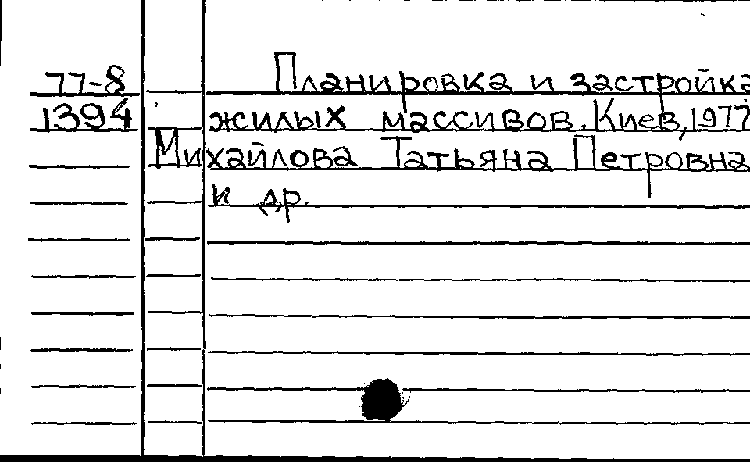 77-8 Планировка и застройка
1394 жилых массивов. Киев, 1977
Михайлова Татьяна Петровна
и др.